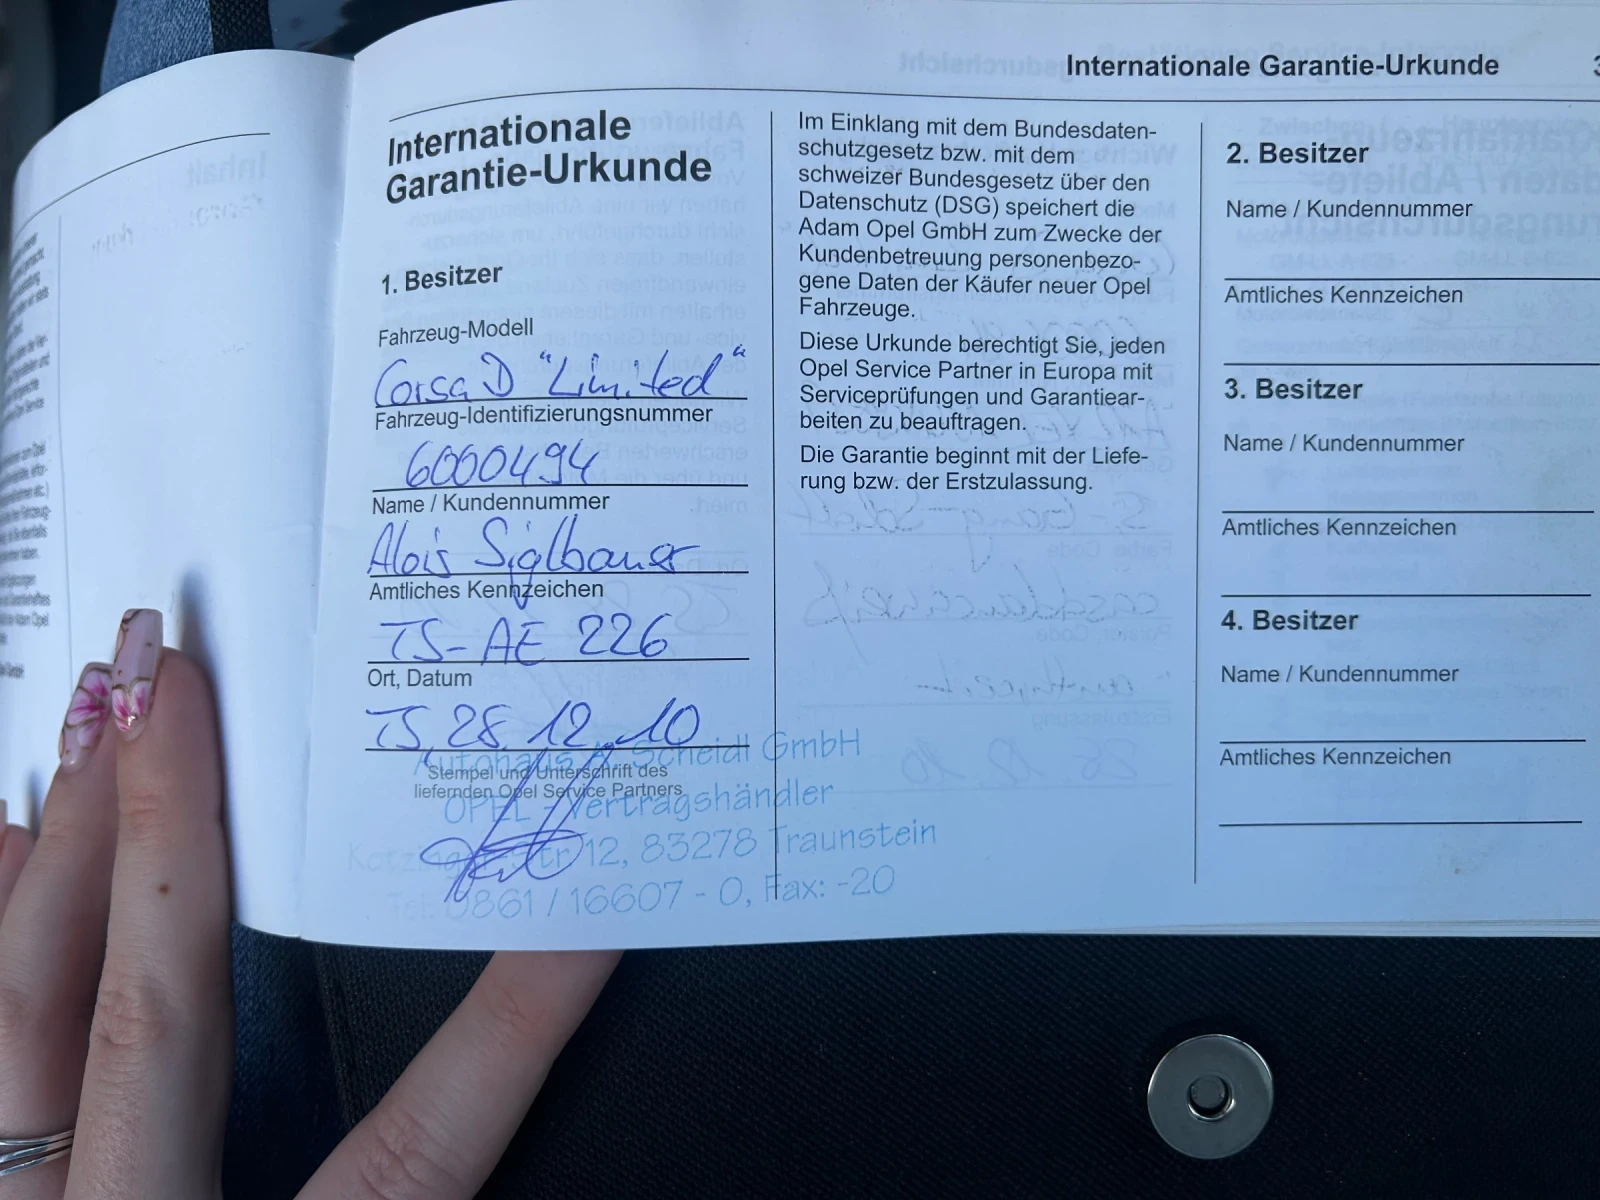 Internationale Garantie-Urkunde
Internationale
Garantie-Urkunde
1. Besitzer
Fahrzeug-Modell
Corsa D "Limited"
Fahrzeug-Identifizierungsnummer
6000494
Name / Kundennummer
Alois Siglbauer
Amtliches Kennzeichen
TS-AE 226
Ort, Datum
TS, 28.12.10
Stempel und Unterschrift des
liefernden Opel Service Partners
Autohaus A. Scheidl GmbH
OPEL - Vertragshändler
12, 83278 Traunstein
Tel: 0861 / 16607 - 0, Fax: -20
Im Einklang mit dem Bundesdaten-
schutzgesetz bzw. mit dem
schweizer Bundesgesetz über den
Datenschutz (DSG) speichert die
Adam Opel GmbH zum Zwecke der
Kundenbetreuung personenbezo-
gene Daten der Käufer neuer Opel
Fahrzeuge.
Diese Urkunde berechtigt Sie, jeden
Opel Service Partner in Europa mit
Serviceprüfungen und Garantiear-
beiten zu beauftragen.
Die Garantie beginnt mit der Liefe-
rung bzw. der Erstzulassung.
2. Besitzer
Name / Kundennummer
Amtliches Kennzeichen
3. Besitzer
Name / Kundennummer
Amtliches Kennzeichen
4. Besitzer
Name / Kundennummer
Amtliches Kennzeichen